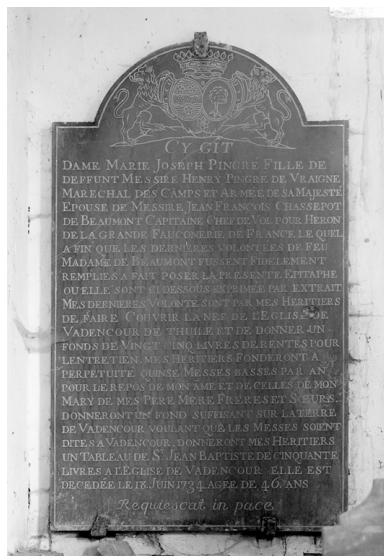 CY GIT
DAME MARIE JOSEPH PINGRE FILLE DE
DEFFUNT MESSIRE HENRY PINGRE DE VRAIGNE
MARECHAL DES CAMPS ET ARMEE DE SA MAJESTE
EPOUSE DE MESSIRE JEAN FRANCOIS CHASSEPOT
DE BEAUMONT CAPITAINE CHEF DE VOL POUR HERON
DE LA GRANDE FAUCONERIE DE FRANCE, LE QUEL
A FIN QUE LES DERNIERES VOLONTEES DE FEU
MADAME DE BEAUMONT FUSSENT FIDELEMENT
REMPLIES A FAIT POSER LA PRESENTE EPITAPHE
OU ELLE SONT CI DESSOUS EXPRIMEE PAR EXTRAIT
MES DERNIERES VOLONTE SONT PAR MES HERITIERS
DE FAIRE COUVRIR LA NES DE L'EGLISE DE
VADENCOUR DE THUILE ET DE DONNER UN
FONDS DE VINGT CINQ LIVRES DE RENTES POUR
L'ENTRETIEN, MES HERITIERS FONDERONT A
PERPETUITE QUINSE MESSES BASSES PAR AN
POUR LE REPOS DE MON AME ET DE CELLES DE MON
MARY DE MES PERE MERE FRERES ET SŒURS.
DONNERONT UN FOND SUFFISANT SUR LA TERRE
DE VADENCOUR VOULANT QUE LES MESSES SOIENT
DITES A VADENCOUR, DONNERONT MES HERITIERS
UN TABLEAU DE ST JEAN BAPTISTE DE CINQUANTE
LIVRES A L'EGLISE DE VADENCOUR ELLE EST
DECEDÉE LE IX JUIN 1734. AGEE DE 46. ANS
Requiescat in pace